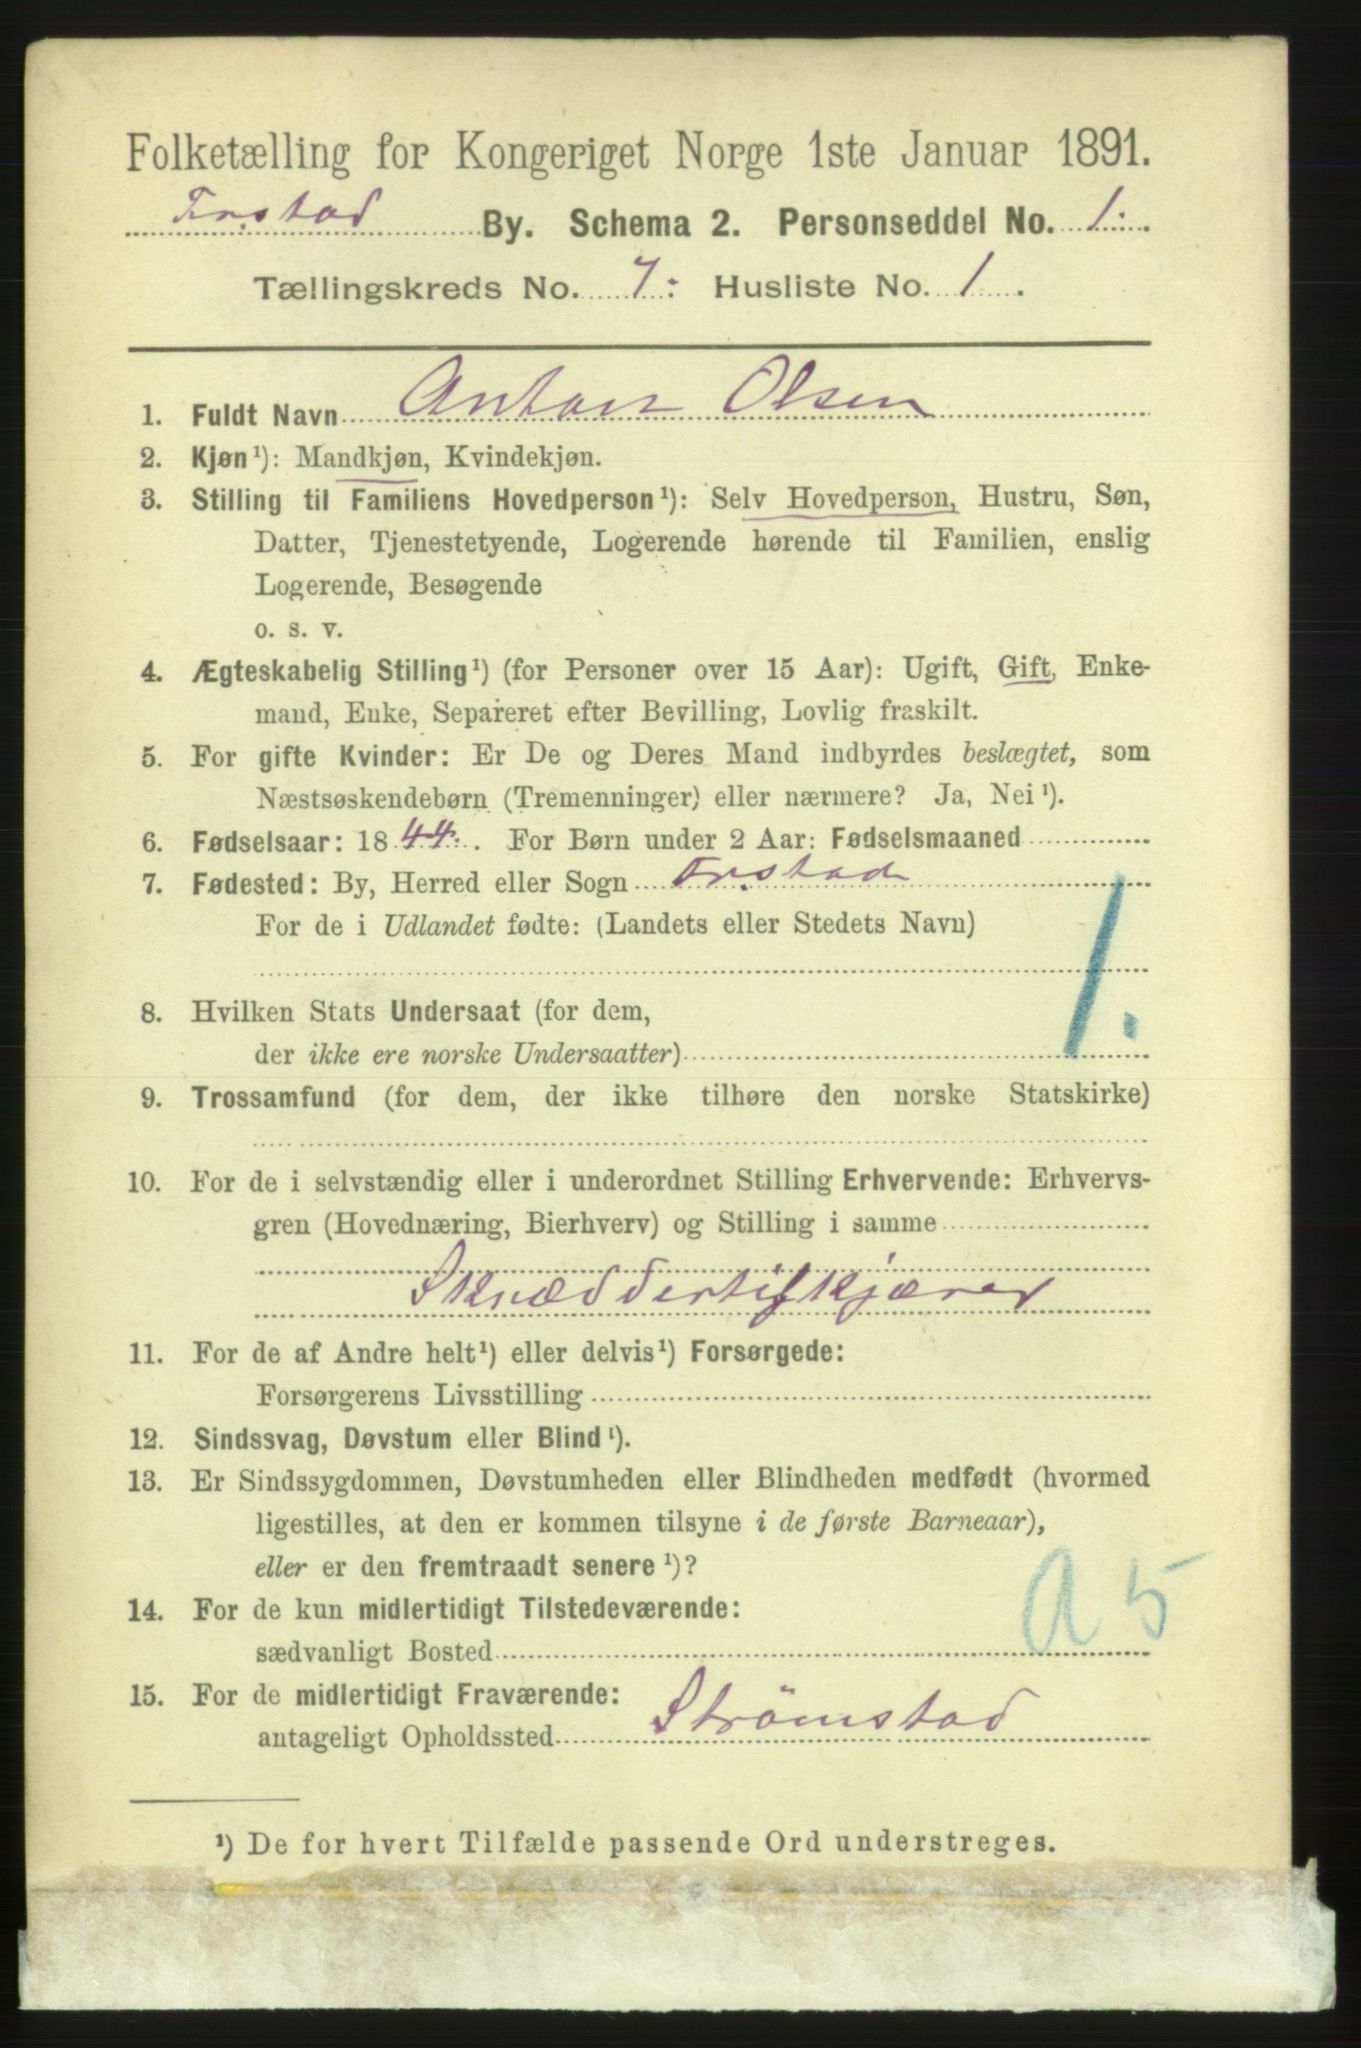 Folketælling for Kongeriget Norge 1ste Januar 1891.
Fr.stad By. Schema 2. Personseddel No. 1.
Tællingskreds No. 7. Husliste No. 1.
1. Fuldt Navn Anton Olsen
2. Kjøn¹): Mandkjøn, Kvindekjøn.
3. Stilling til Familiens Hovedperson¹): Selv Hovedperson, Hustru, Søn,
Datter, Tjenestetyende, Logerende hørende til Familien, enslig
Logerende, Besøgende
o. s. v.
4. Ægteskabelig Stilling¹) (for Personer over 15 Aar): Ugift, Gift, Enke-
mand, Enke, Separeret efter Bevilling, Lovlig fraskilt.
5. For gifte Kvinder: Er De og Deres Mand indbyrdes beslægtet, som
Næstsøskendebørn (Tremenninger) eller nærmere? Ja, Nei¹).
6. Fødselsaar: 1844. For Børn under 2 Aar: Fødselsmaaned
7. Fødested: By, Herred eller Sogn Fr.stad
For de i Udlandet fødte: (Landets eller Stedets Navn)
1.
8. Hvilken Stats Undersaat (for dem,
der ikke ere norske Undersaatter)
9. Trossamfund (for dem, der ikke tilhøre den norske Statskirke)
10. For de i selvstændig eller i underordnet Stilling Erhvervende: Erhvervs-
gren (Hovednæring, Bierhverv) og Stilling i samme
Skræddertilskjærer
11. For de af Andre helt¹) eller delvis¹) Forsørgede:
Forsørgerens Livsstilling
12. Sindssvag, Døvstum eller Blind¹).
13. Er Sindssygdommen, Døvstumheden eller Blindheden medfødt (hvormed
ligestilles, at den er kommen tilsyne i de første Barneaar),
eller er den fremtraadt senere¹)?
14. For de kun midlertidigt Tilstedeværende:
sædvanligt Bosted
A 5
15. For de midlertidigt Fraværende:
antageligt Opholdssted Strömstad
¹) De for hvert Tilfælde passende Ord understreges.